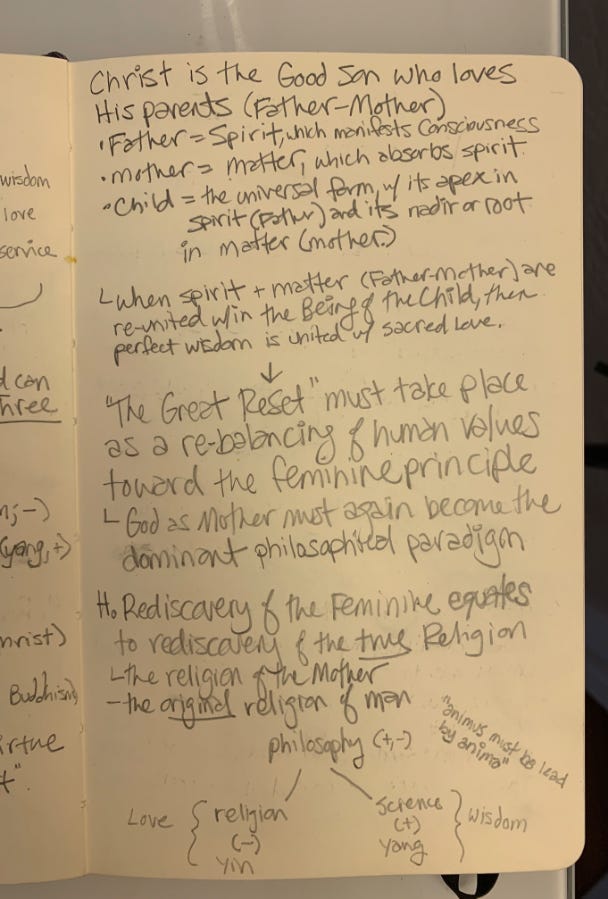 wisdom
love
service
d can
three
n; -)
(yang, +)
hrist)
Buddhism,
irtue
t".
Christ is the Good Son who loves
His parents (Father-Mother)
• Father = Spirit, which manifests Consciousness
• Mother = Matter, which absorbs spirit.
• Child = the universal form, w/ its apex in
spirit (Father) and its nadir or root
in matter (mother.)
└ when spirit + matter (Father-Mother) are
re-united w/in the Being of the Child, then
perfect wisdom is united w/ sacred love.
↓
"The Great Reset" must take place
as a re-balancing of human values
toward the feminine principle
└ God as Mother must again become the
dominant philosophical paradigm
H. Rediscovery of the Feminine equates
to rediscovery of the true Religion
└ the religion of the Mother
- the original religion of man
"animus must be lead
by anima"
philosophy (+,-)
Love { religion science } wisdom
(-) (+)
yin yang